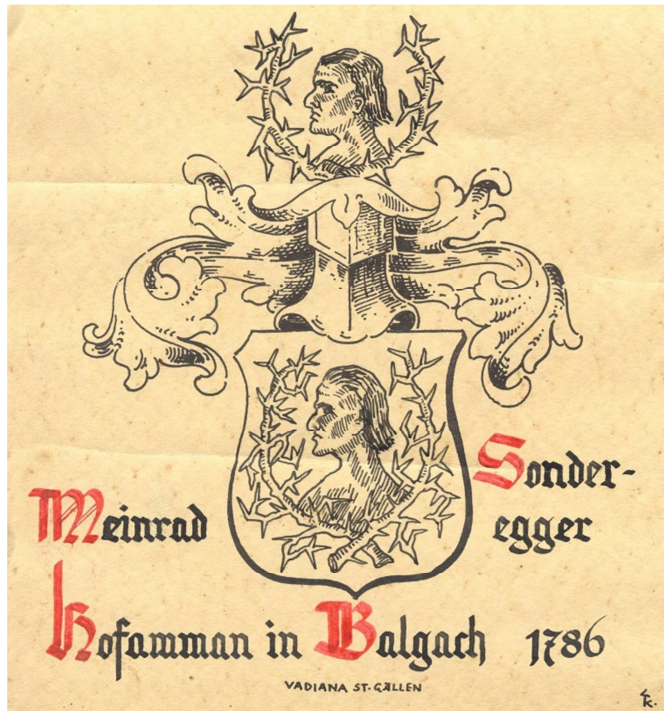 Meinrad Sonder-
egger
Hofamman in Balgach 1786
VADIANA ST. GALLEN